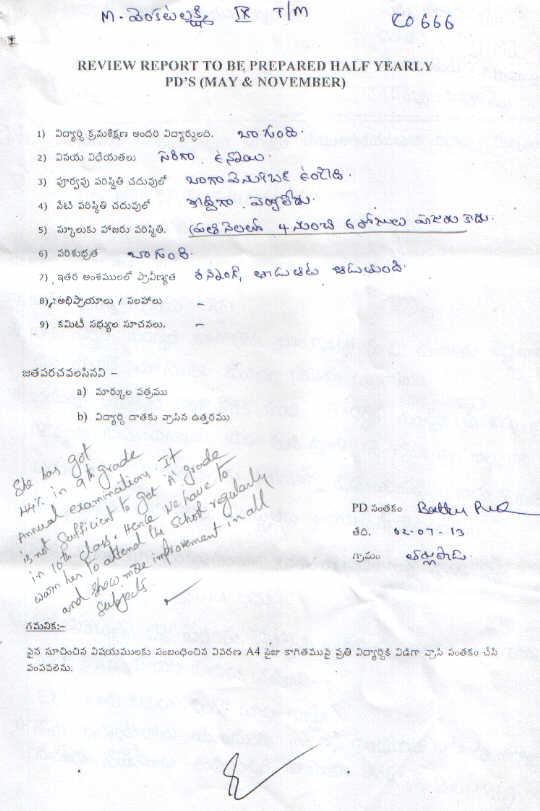 M. వెంకటలక్ష్మి IX T/M C0666
REVIEW REPORT TO BE PREPARED HALF YEARLY
PD'S (MAY & NOVEMBER)
1) విద్యార్థి క్రమశిక్షణ అందరి విద్యార్థులది. బాగుంది.
2) వినయ విధేయతలు సరిగా ఉన్నాయి.
3) పూర్వపు పరిస్థితి చదువులో బాగా వెనుకబడి ఉండెది.
4) నేటి పరిస్థితి చదువులో
5) స్కూలుకు హాజరు పరిస్థితి. (ప్రతి నెలలో 4 నుంచి 6 రోజులు హాజరు కాదు.
6) పరిశుభ్రత బాగుంది.
7) ఇతర అంశములలో ప్రావీణ్యత రన్నింగ్, ఆడుతుంది.
8) అభిప్రాయాలు / సలహాలు –
9) కమిటీ సభ్యుల సూచనలు. –
జతపరచవలసినవి –
a) మార్కుల పత్రము
b) విద్యార్థి దాతకు వ్రాసిన ఉత్తరము
She has got
44% in 9th grade
Annual examinations. It
is not sufficient to get 'A' grade
in 10th class. Hence we have to
warn her to attend the school regularly
and show more improvement in all
subjects
PD సంతకం
తేది. 02-07-13
గ్రామం
గమనిక:-
పైన సూచించిన విషయములకు సంబంధించిన వివరణ A4 సైజు కాగితముపై ప్రతి విద్యార్థికి విడిగా వ్రాసి సంతకం చేసి
పంపవలెను.